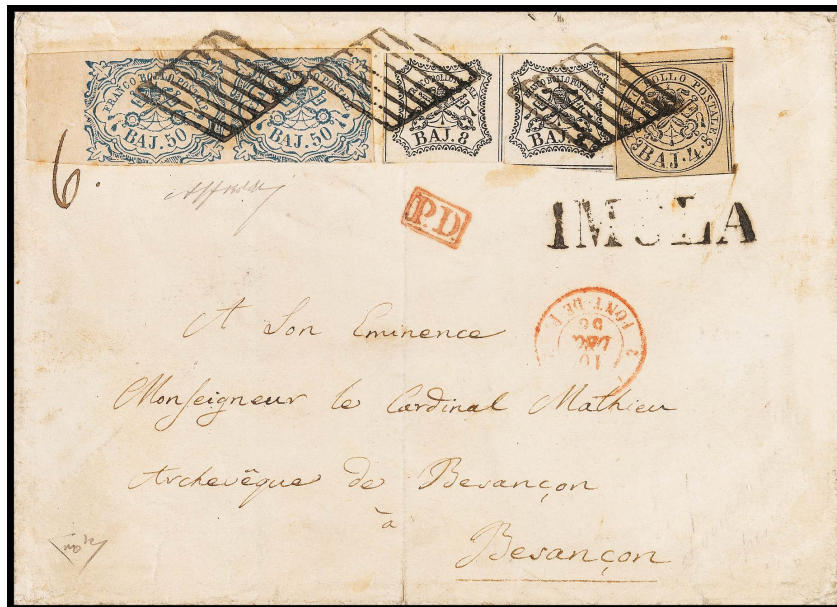 FRANCO BOLLO POSTALE
BAJ. 50
FRANCO BOLLO POSTALE
BAJ. 50
FRANCO BOLLO POSTALE
BAJ. 8
FRANCO BOLLO POSTALE
BAJ. 8
BOLLO POSTALE
BAJ. 4
6.
P.D.
IMOLA
2 PONT-DE-B.
10
DEC.
56
A Son Eminence
Monseigneur le Cardinal Mathieu
Archevêque de Besançon
à
Besançon